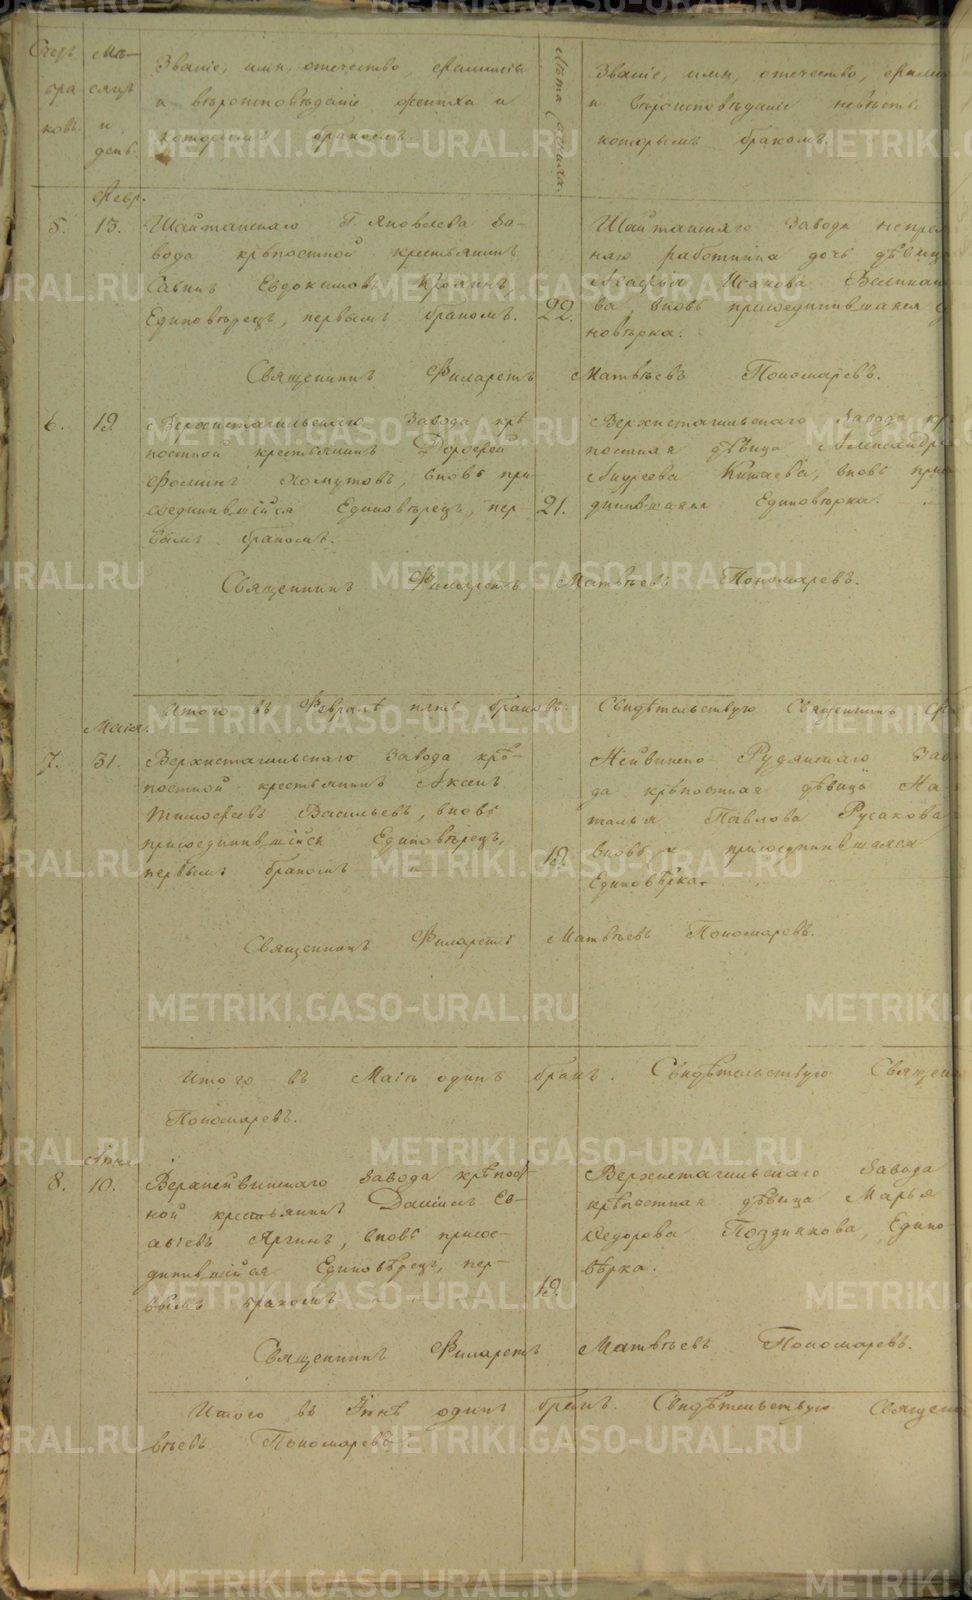 METRIKI.GASO-URAL.RU
Счетъ
бра
ковъ.
Мѣ-
сяцъ
и
день.
Званіе, имя, отечество, фамилія
и вѣроисповѣданіе жениха и
которымъ бракомъ.
Лѣта жениха.
Званіе, имя, отечество, фамил
и вѣроисповѣданіе невѣсты
которымъ бракомъ.
Февр.
5.
13.
Шайтанскаго Г. Яковлева за-
вода крѣпостной крестьянинъ
Савинъ Евдокимовъ
Единовѣрецъ, первымъ бракомъ.
22.
Шайтанскаго Завода непрем
наго работника дочь дѣвица
Агафья Исакова
ва, вновь присоединившаяся
новѣрка.
Священникъ Филаретъ Матвѣевъ Пономаревъ.
6.
19
Верхнетагильскаго Завода крѣ
постной крестьянинъ Дорофей
Фоминъ Хомутовъ, вновь при
соединившійся Единовѣрецъ, пер
вымъ бракомъ.
21.
Верхнетагильскаго Завода кр
постная дѣвица Александра
Андреева Китаева, вновь присо
динившаяся Единовѣрка.
Священникъ Филаретъ Матвѣевъ Пономаревъ.
Итого въ Февралѣ пять браковъ. Свидѣтельствую Священникъ Ф
Маія.
7.
31.
Верхнетагильскаго Завода крѣ-
постной крестьянинъ
Тимофеевъ Васильевъ, вновь
присоединившійся Единовѣрецъ,
первымъ бракомъ
19.
Нейвинско-Рудянскаго Заво
да крѣпостная дѣвица На
талья Павлова Русакова
вновь присоединившаяся
Единовѣрка.
Священникъ Филаретъ Матвѣевъ Пономаревъ.
Итого въ Маіѣ одинъ бракъ. Свидѣтельствую Священ
Пономаревъ.
8.
10.
Верхнейвинскаго Завода крѣпост-
ной крестьянинъ Даніилъ Са-
вѣевъ Яргинъ, вновь присое-
динившійся Единовѣрецъ, пер-
вымъ бракомъ
19.
Верхнетагильскаго Завода
крѣпостная дѣвица Марья
Ѳедорова Позднякова, Едино-
вѣрка.
Священникъ Филаретъ Матвѣевъ Пономаревъ.
Итого въ Іюнѣ одинъ бракъ. Свидѣтельствую Священ
вѣевъ Пономаревъ